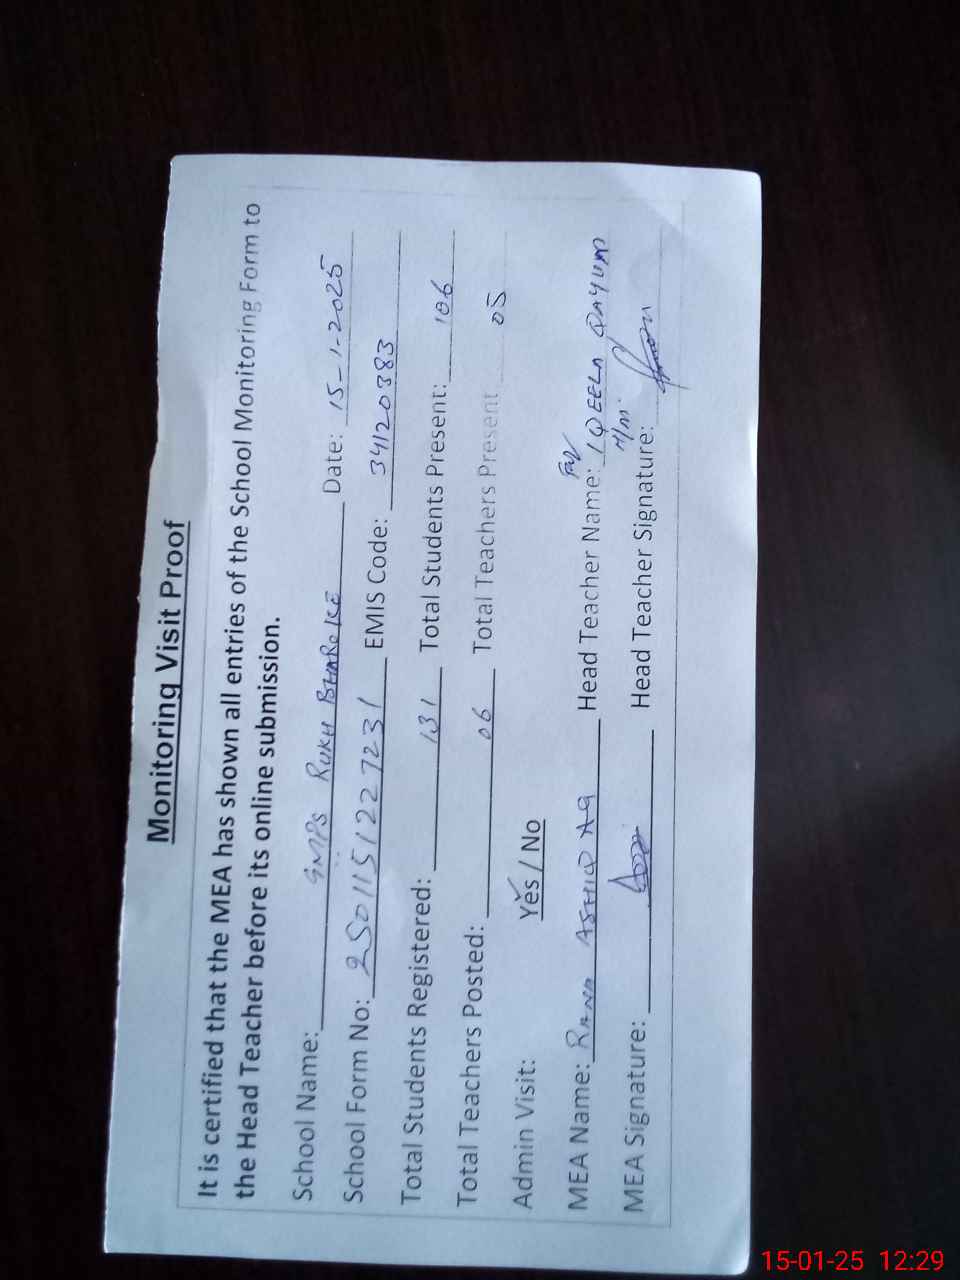 Monitoring Visit Proof
It is certified that the MEA has shown all entries of the School Monitoring Form to
the Head Teacher before its online submission.
School Name: GMPS RUKH BHAROKE Date: 15-1-2025
School Form No: 2501151227231 EMIS Code: 34120383
Total Students Registered: 131 Total Students Present: 106
Total Teachers Posted: 06 Total Teachers Present 05
Admin Visit: Yes / No
MEA Name: RANA ASHIQ Head Teacher Name: IQEELA QAYUM
H/M
MEA Signature: Head Teacher Signature:
15-01-25 12:29